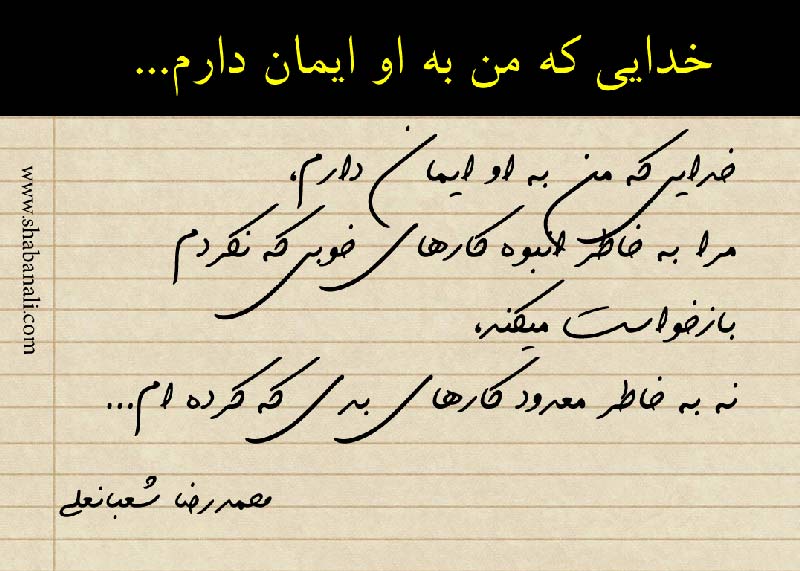 خدایی که من به او ایمان دارم...
خدایی که من به او ایمان دارم،
مرا به خاطر انبوه کارهای خوبی که نکردم
بازخواست میکند،
نه به خاطر معدود کارهای بدی که کرده ام...
محمدرضا شعبانعلی
www.shabanali.com